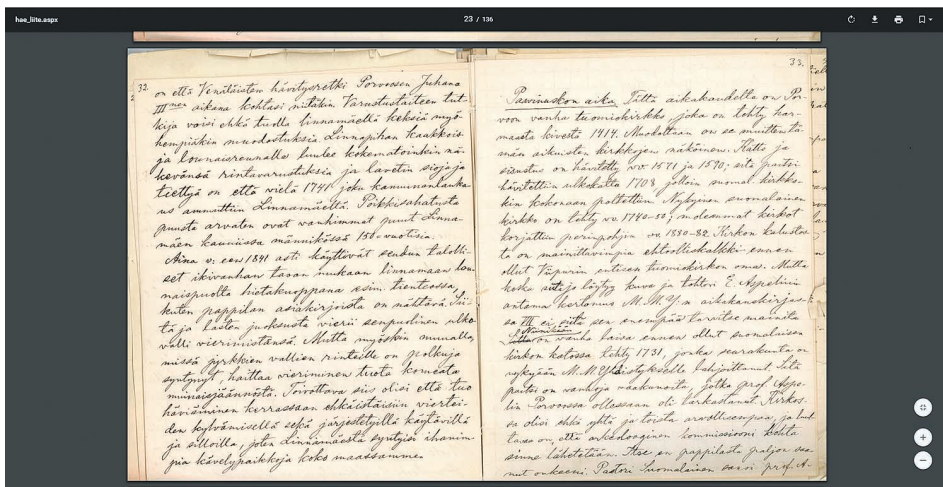 hae_liite.aspx
23 / 136
32.
on että Venäläisten hävitysretki Porvoosen Juhana
III:nen aikana kohtasi niitäkin. Varustustaiteen tut-
kija voisi ehkä tuolla linnamäellä keksiä myö-
hempiäkin muodostuksia. Linnapihan kaakkois-
ja lounaisreunalla luulee kokematoinkin nä-
kevänsä rintavarustuksia ja lavetin siojaja
tiettyä on että vielä 1741 joku kanuunanlauka-
us ammuttiin Linnamäeltä. Poikkisahatusta
puusta arvaten ovat vanhimmat puut Linna-
mäen kauniissa männikössä 150-vuotisia.
Aina v:een 1841 asti käyttivät seudun talolli-
set ikivanhan tavan mukaan linnamäen lou-
naispuolta hietakuoppana esim. tienteossa,
kuten pappilan asiakirjoista on nähtävä. Sii-
tä ja lasten juoksusta vierii senpuolinen ulko-
valli vierimistänsä. Mutta myöskin muualla,
missä jyrkkien vallien rinteille on polkuja
syntynyt, haittaa vieriminen tuota komeata
muinaisjäännöstä. Toivottava siis olisi että tuo
häviäminen kerrassaan ehkäistäisiin viertei-
den kylvämisellä sekä järjestetyillä käytävillä
ja silloilla, joten Linnamäestä syntyisi ihanim-
pia kävelypaikkoja koko maassamme.
33.
Paavinuskon aika. Tältä aikakaudelta on Por-
voon vanha tuomiokirkko, joka on tehty har-
maasta kivestä 1414. Muodoltaan on se muitten tä-
män aikuisten kirkkojen näköinen. Katto ja
sisustus on hävitetty vv. 1571 ja 1590; sitä paitsi
hävitettiin ulkokatto 1708 jolloin suomal. kirkko-
kin kokonaan poltettiin. Nykyinen suomalainen
kirkko on tehty vv. 1740-50; molemmat kirkot
korjattiin perinpohjin vv 1880-82. Kirkon kalustos-
ta on mainittavimpia ehtoolliskalkki ennen
ollut Viipurin entisen tuomiokirkon oma. Mutta
koska siitä jo löytyy kuva ja tohtori E. Aspelinin
antama kertomus M.M.Y:n aikakauskirjas-
sa III ei sen enempää tarvitse mainita
on vanha taivas ennen ollut suomalaisen
kirkon katossa tehty 1731, jonka seurakunta on
nykyään M.M.Yhdistykselle lahjoittanut. Sitä
paitsi on vanhoja vaakunoita, jotka prof. Aspe-
lin Porvoossa ollessaan oli tarkastanut. Kirkos-
sa olisi ehkä yhtä ja toista arvollisempaa, ja
on, että arkeologinen kommissiooni kohta
sinne lähetetään. Itse en pappilasta paljon saa-
nut Pastori Suomalainen sanoi prof. A-